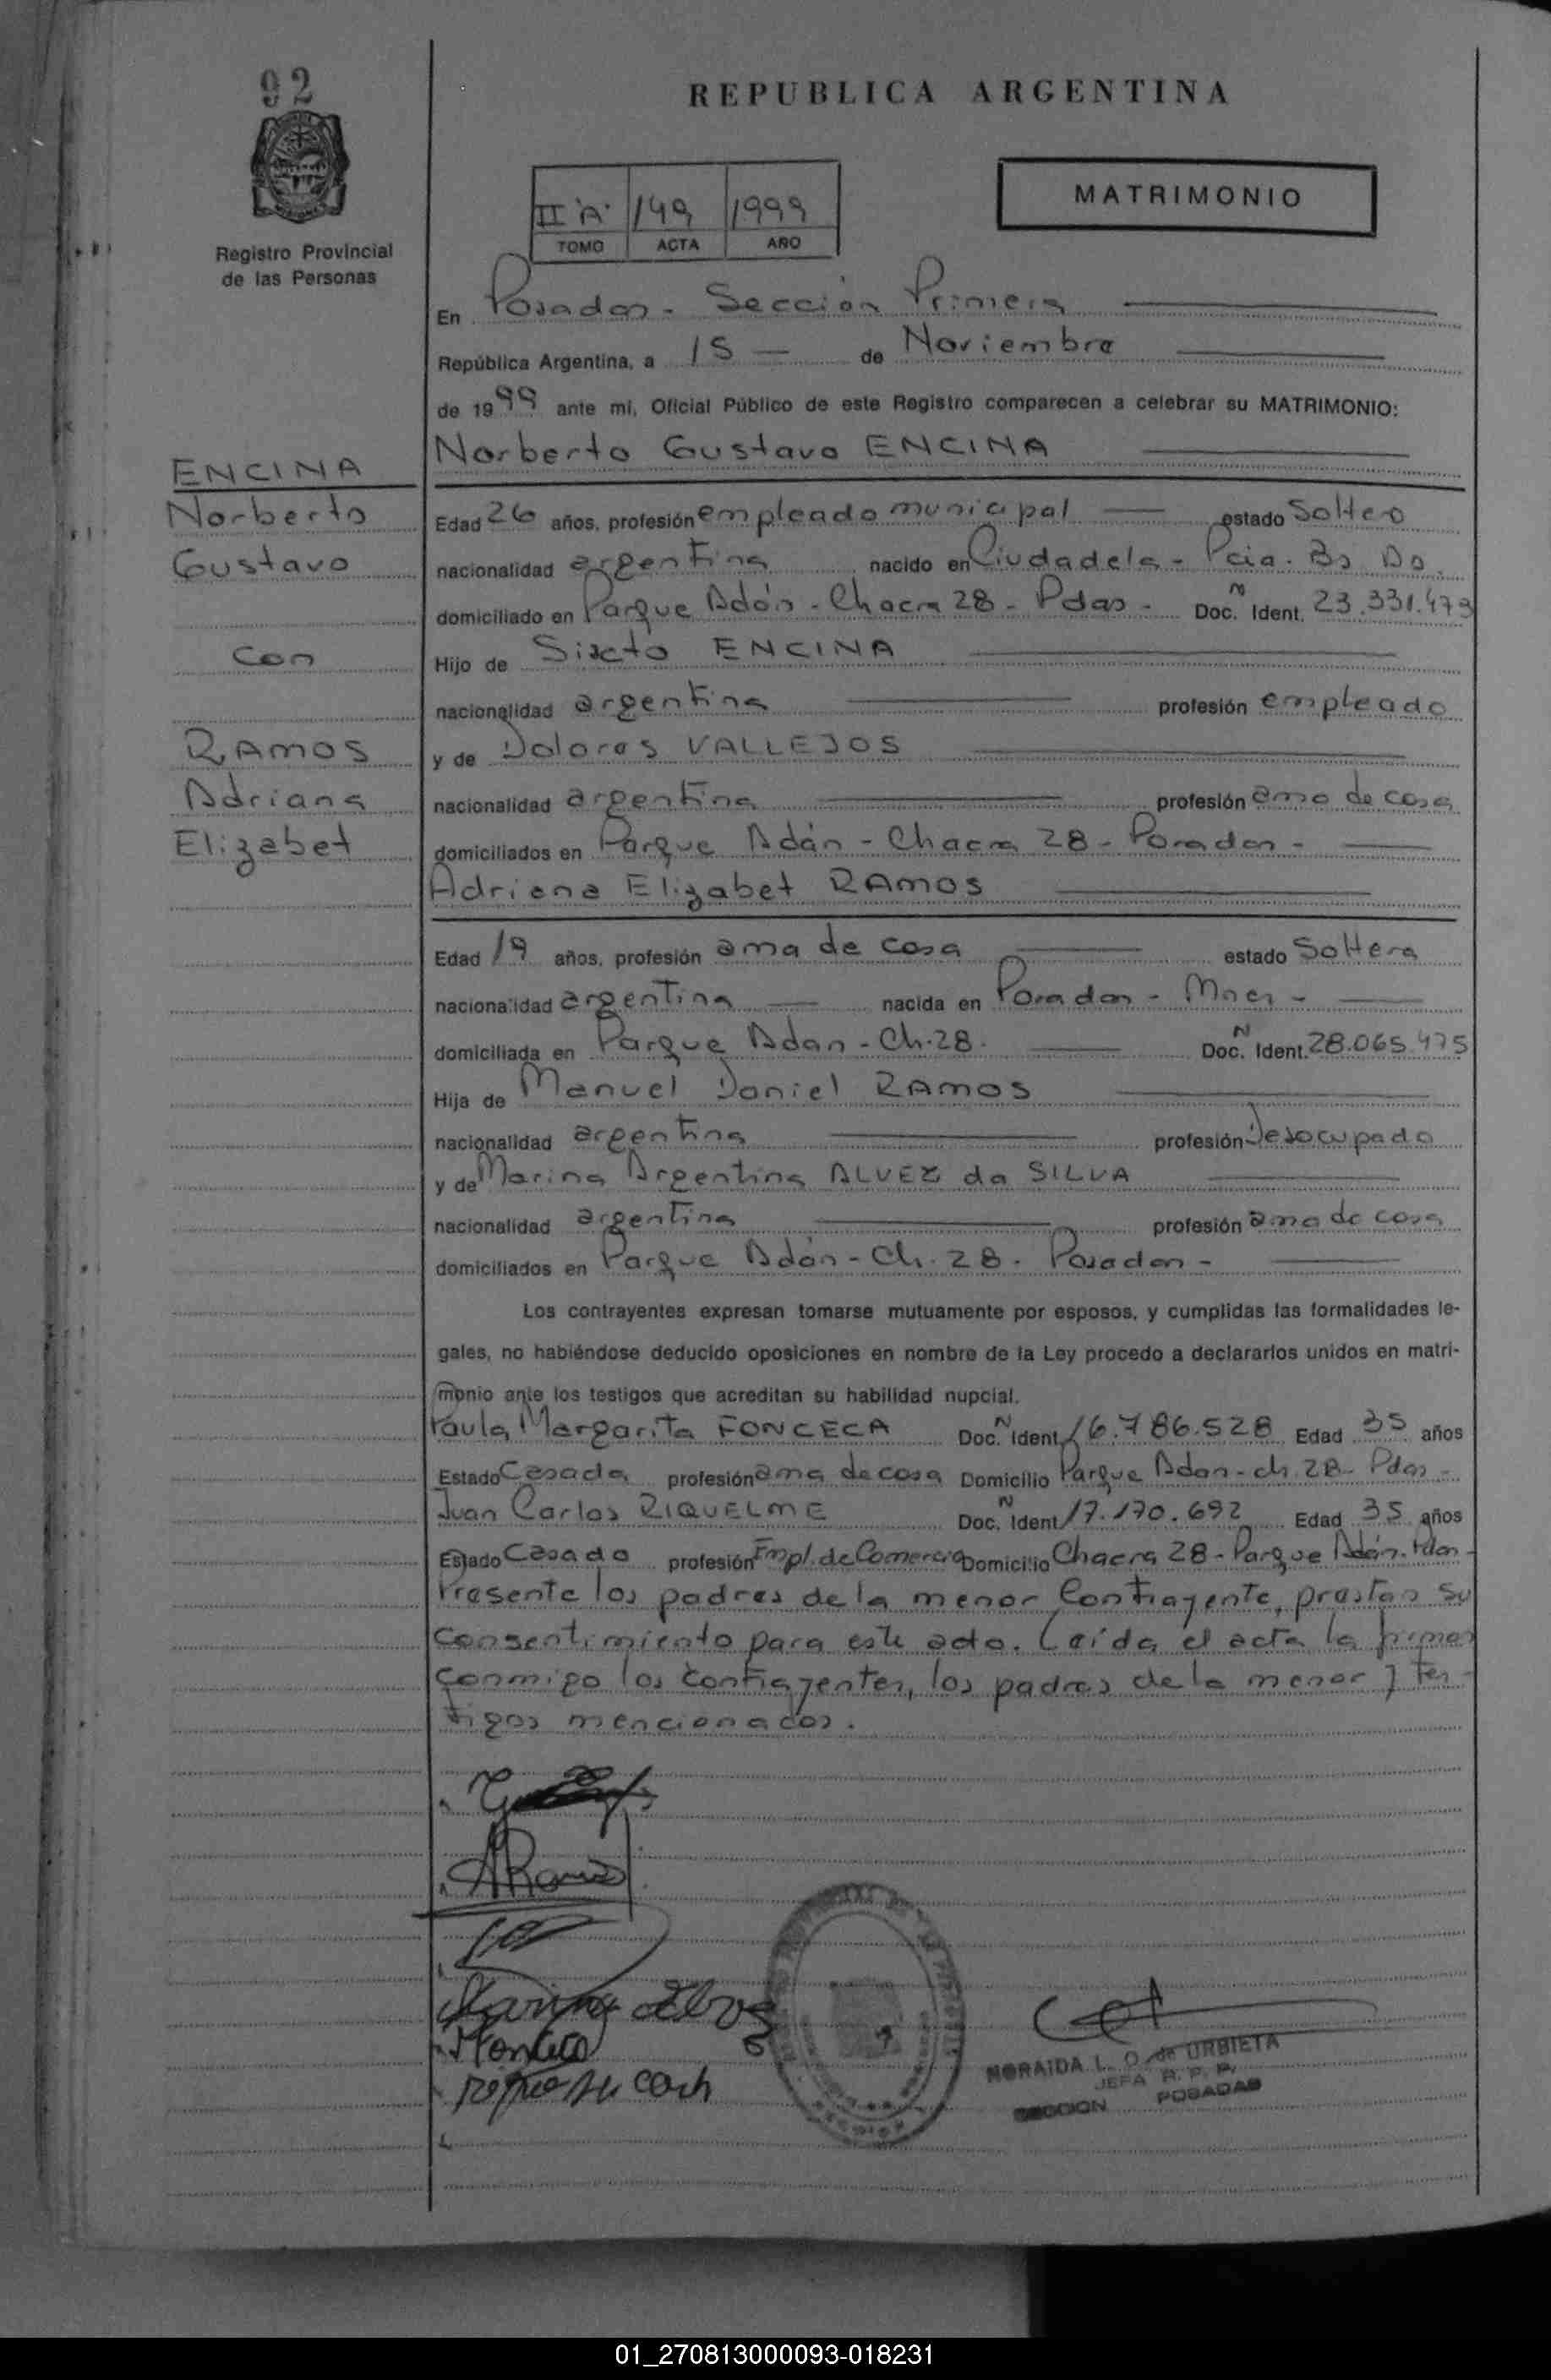 92
REPUBLICA ARGENTINA
MATRIMONIO
II "A" 149 1999
TOMO ACTA AÑO
Registro Provincial
de las Personas
En Posadas - Sección Primera
República Argentina, a 15 — de Noviembre
de 1999 ante mi, Oficial Público de este Registro comparecen a celebrar su MATRIMONIO:
Norberto Gustavo ENCINA
ENCINA
Norberto
Gustavo
Con
RAMOS
Adriana
Elizabet
Edad 26 años, profesión empleado municipal estado Soltero
nacionalidad argentina nacido en Ciudadela - Pcia. Bs As.
domiciliado en Parque Adán - Chacra 28 - Pdas - Doc. N Ident. 23.331.473
Hijo de Sixto ENCINA
nacionalidad argentina profesión empleado
y de Dolores VALLEJOS
nacionalidad argentina profesión ama de casa
domiciliados en Parque Adán - Chacra 28 - Posadas -
Adriana Elizabet RAMOS
Edad 19 años, profesión ama de casa estado Soltera
nacionalidad argentina — nacida en Posadas - Mnes -
domiciliada en Parque Adan - Ch. 28. Doc. N Ident. 28.065.475
Hija de Manuel Daniel RAMOS
nacionalidad argentina profesión Desocupado
y de Marina Argentina ALVEZ da SILVA
nacionalidad argentina profesión ama de casa
domiciliados en Parque Adán - Ch. 28. Posadas -
Los contrayentes expresan tomarse mutuamente por esposos, y cumplidas las formalidades le-
gales, no habiéndose deducido oposiciones en nombre de la Ley procedo a declararlos unidos en matri-
monio ante los testigos que acreditan su habilidad nupcial.
Paula Margarita FONCECA Doc. N Ident. 16.786.528 Edad 35 años
Estado Casada profesión ama de casa Domicilio Parque Adan - ch. 28 - Pdas -
Juan Carlos RIQUELME Doc. N Ident. 17.170.692 Edad 35 años
Estado Casado profesión Empl. de Comercio Domicilio Chacra 28 - Parque Adán. Pdas -
Presente los padres de la menor Contrayente, prestan su
consentimiento para este acto. Leída el acta la firman
conmigo los contrayentes, los padres de la menor y tes-
tigos mencionados.
ARamos
Marina Alvez
NORAIDA L. O. de URBIETA
JEFA R. P. P.
SECCION POSADAS
01_270813000093-018231